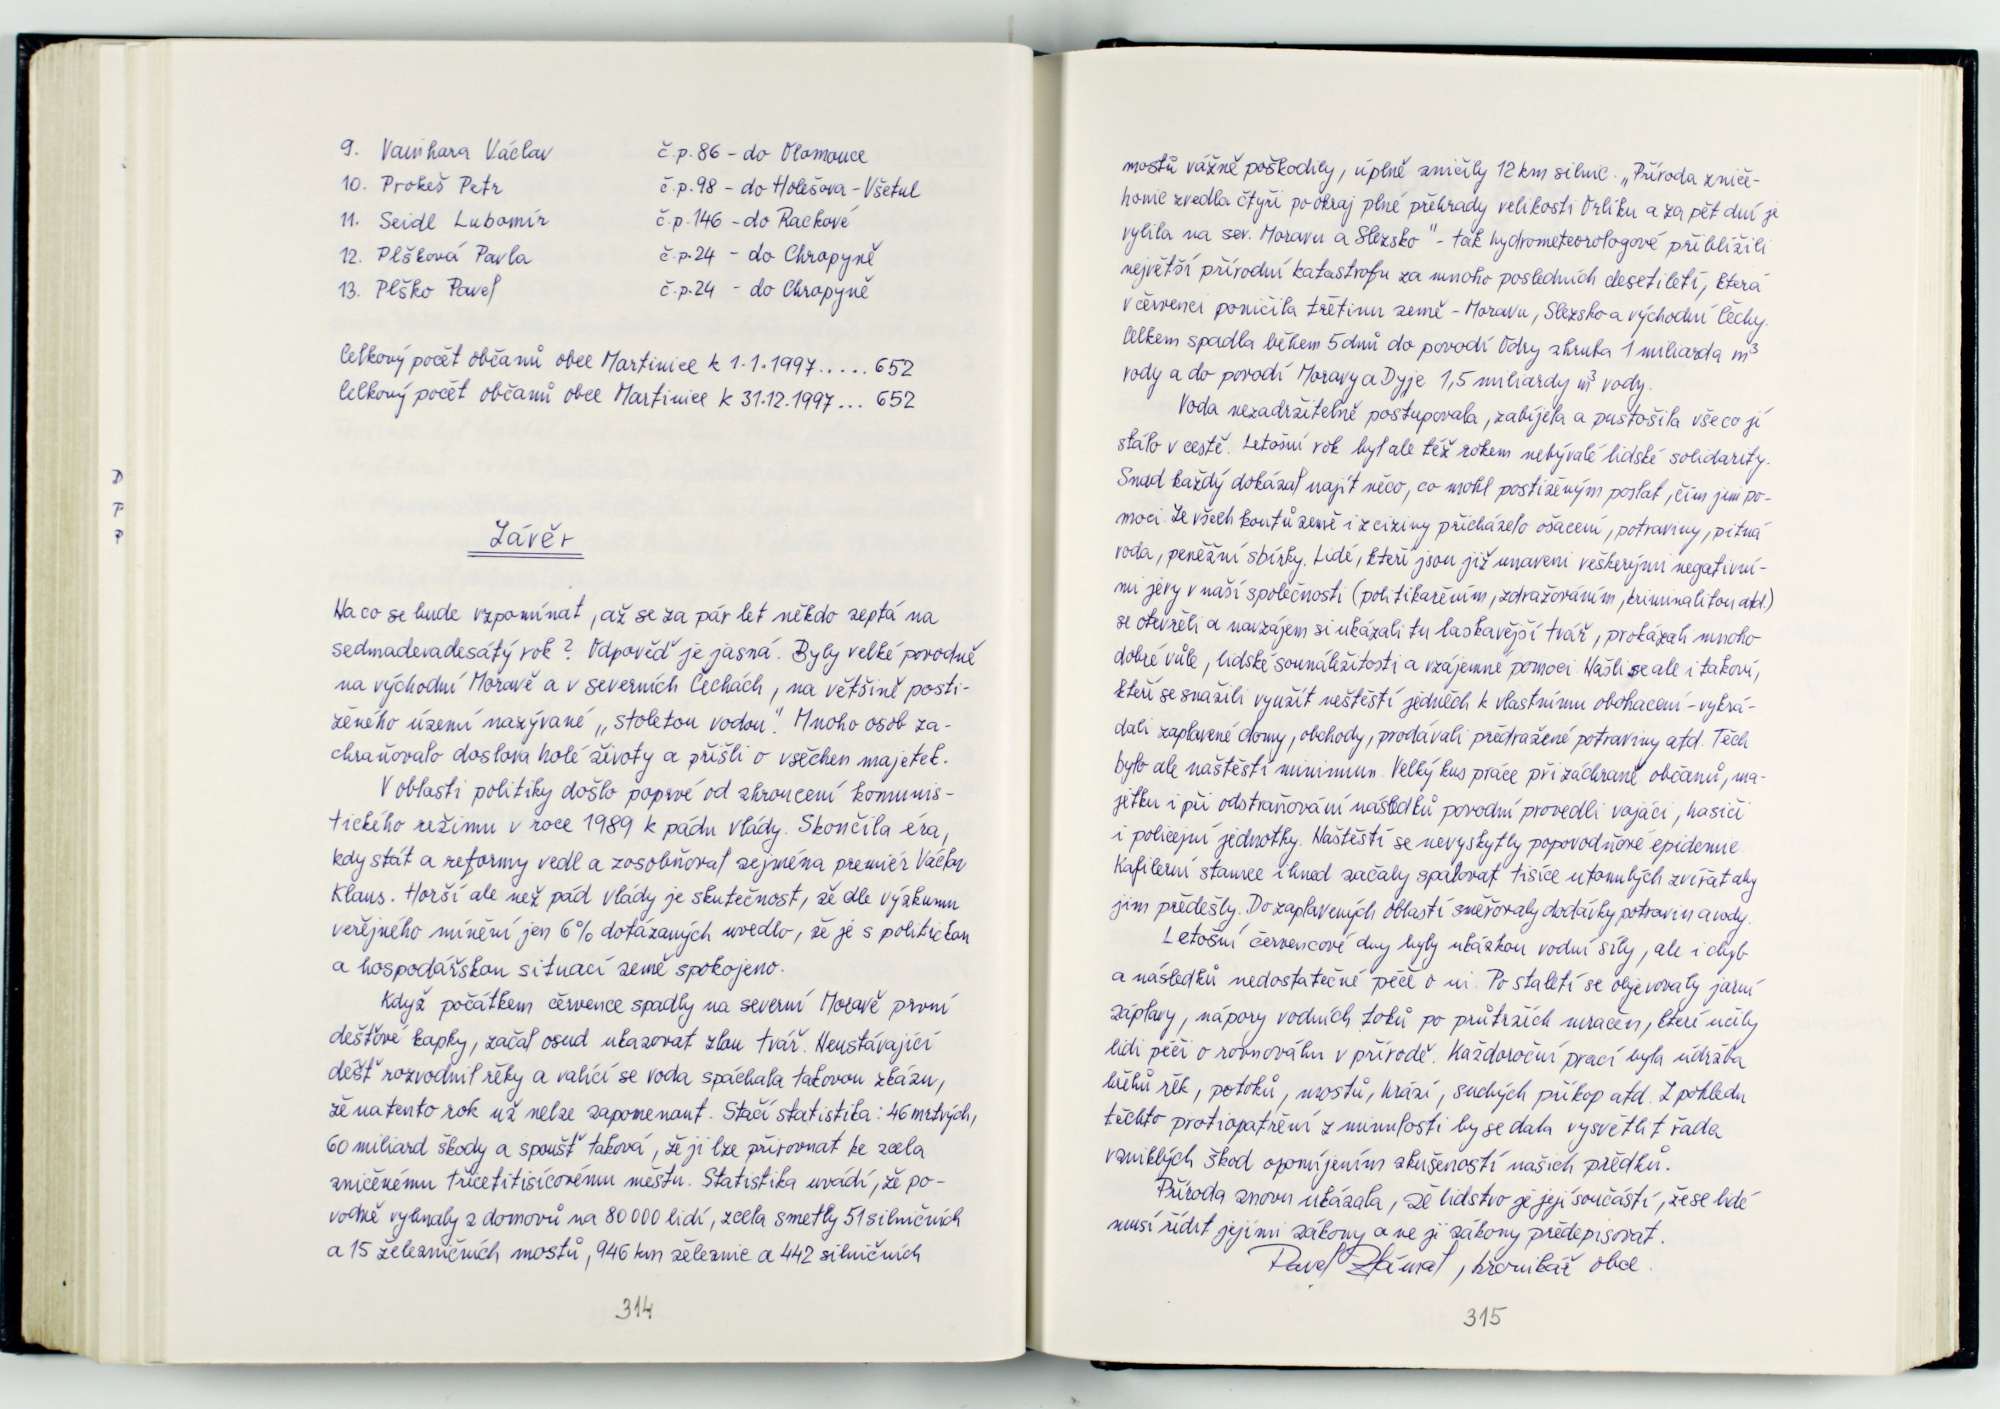 9. Vaınhara Václav č.p. 86 - do Olomouce
10. Prokeš Petr č.p. 98 - do Holešova - Všetul
11. Seidl Lubomír č.p. 146 - do Rackové
12. Plšková Pavla č.p. 24 - do Chropyně
13. Plško Pavel č.p. 24 - do Chropyně
Celkový počet občanů obce Martinice k 1.1.1997..... 652
Celkový počet občanů obce Martinice k 31.12.1997... 652
Závěr
Na co se bude vzpomínat, až se za pár let někdo zeptá na
sedmadevadesátý rok? Odpověď je jasná. Byly velké povodně
na východní Moravě a v severních Čechách, na většině posti-
ženého území nazývané „stoletou vodou". Mnoho osob za-
chraňovalo doslova holé životy a přišli o všechen majetek.
V oblasti politiky došlo poprvé od zhroucení komunis-
tického režimu v roce 1989 k pádu vlády. Skončila éra,
kdy stát a reformy vedl a zosobňoval zejména premiér Václav
Klaus. Horší ale než pád vlády je skutečnost, že dle výzkumu
veřejného mínění jen 6% dotázaných uvedlo, že je s politickou
a hospodářskou situací země spokojeno.
Když počátkem července spadly na severní Moravě první
dešťové kapky, začal osud ukazovat zlou tvář. Neustávající
déšť rozvodnil řeky a valící se voda spáchala takovou zkázu,
že na tento rok už nelze zapomenout. Stačí statistika: 46 mrtvých,
60 miliard škody a spoušť taková, že ji lze přirovnat ke zcela
zničenému třicetitisícovému městu. Statistika uvádí, že po-
vodně vyhnaly z domovů na 80 000 lidí, zcela smetly 51 silničních
a 15 železničních mostů, 946 km železnic a 442 silničních
314
mostů vážně poškodily, úplně zničily 12 km silnic. „Příroda zniče-
honic zvedla čtyři po okraj plné přehrady velikosti Orlíku a za pět dní je
vylila na sev. Moravu a Slezsko" - tak hydrometeorologové přiblížili
největší přírodní katastrofu za mnoho posledních desetiletí, která
v červenci poničila třetinu země - Moravu, Slezsko a východní Čechy.
Celkem spadla během 5 dnů do povodí Odry zhruba 1 miliarda m³
vody a do povodí Moravy a Dyje 1,5 miliardy m³ vody.
Voda nezadržitelně postupovala, zabíjela a pustošila vše co jí
stálo v cestě. Letošní rok byl ale též rokem nebývalé lidské solidarity.
Snad každý dokázal najít něco, co mohl postiženým poslat, čím jim po-
moci. Ze všech koutů země i z ciziny přicházelo ošacení, potraviny, pitná
voda, peněžní sbírky. Lidé, kteří jsou již unaveni veškerými negativní-
mi jevy v naší společnosti (politikařením, zdražováním, kriminalitou atd.)
se otevřeli a navzájem si ukázali tu laskavější tvář, prokázali mnoho
dobré vůle, lidské sounáležitosti a vzájemné pomoci. Našli se ale i takoví,
kteří se snažili využít neštěstí jedněch k vlastnímu obohacení - vykrá-
dali zaplavené domy, obchody, prodávali předražené potraviny atd. Těch
bylo ale naštěstí minimum. Velký kus práce při záchraně občanů, ma-
jetku i při odstraňování následků povodní provedli vojáci, hasiči
i policejní jednotky. Naštěstí se nevyskytly popovodňové epidemie.
Kafilerní stanice ihned začaly spalovat tisíce utonulých zvířat aby
jim předešly. Do zaplavených oblastí směřovaly dodávky potravin a vody.
Letošní červencové dny byly ukázkou vodní síly, ale i chyb
a následků nedostatečné péče o ni. Po staletí se objevovaly jarní
záplavy, nápory vodních toků po průtržích mračen, které učily
lidi péči o rovnováhu v přírodě. Každoroční prací byla údržba
břehů řek, potoků, mostů, hrází, suchých příkop atd. Z pohledu
těchto protiopatření z minulosti by se dala vysvětlit řada
vzniklých škod opomíjením zkušeností našich předků.
Příroda znovu ukázala, že lidstvo je její součástí, že se lidé
musí řídit jejími zákony a ne jí zákony předepisovat.
Pavel Zlámal, kronikář obce.
315
D
P
P